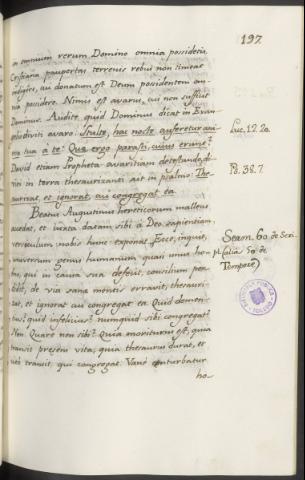 197.
a omnium rerum Domino omnia possidetis
Christiana paupertas terrenis rebus non timeat
indigere, cui donatum est Deum possidentem om-
nia possidere. Nimis est avarus, cui non sufficit
Dominus. Audite quid Dominus dicat in Evan-
gelio diviti avaro: Stulte, hac nocte auferetur ani-
ma tua a te: Quæ ergo parasti, cuius erunt?
Luc. 12. 20.
David etiam Propheta avaritiam detestando, di-
viti in terra thesaurizanti ait in psalmo: The-
Ps. 38. 7.
saurizat, et ignorat, cui congregat ea.
Beatus Augustinus hereticorum malleus
accedat, et iuxta datam sibi à Deo sapientiam,
versiculum nobis hunc exponat. Ecce, inquit,
Serm. 60 de Scri-
universum genus humanum quasi unus ho-
pt. (aliàs 50 de
mo, qui in causa sua deficit, consilium pe-
Tempore)
dibili, de via sana mentis erravit, thesauri-
zat, et ignorat cui congregat ea. Quid demen-
tius? quid infelicius? numquid sibi congregat?
Non. Quare non sibi? Quia moriturus est, quia
transit presens vita, quia thesaurus durat, et
citò transit qui congregat. Vanè conturbatur
ho-